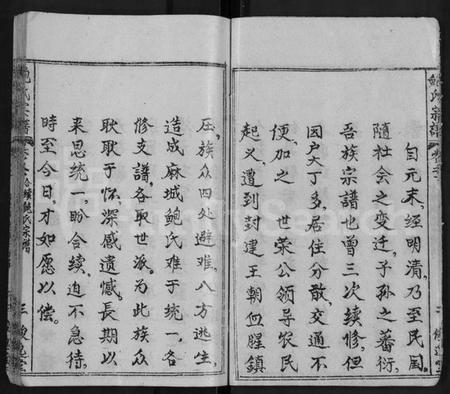 自元末、經明清、乃至民國、
隨社会之变迁、子孙之蕃衍、
吾族宗譜也曾三次续修、但
因户大丁多、居住分散、交通不
便、加之 世荣公领导农民
起义、遭到封建王朝血腥鎮
压、族众四处避难、八方逃生、
造成麻城鲍氏难于统一、各
修支譜、各取世派、为此族众
耿耿于怀、深感遗憾、長期以
来思统一、盼合续、迫不急待、
時至今日、才如愿以偿。
鲍氏宗譜